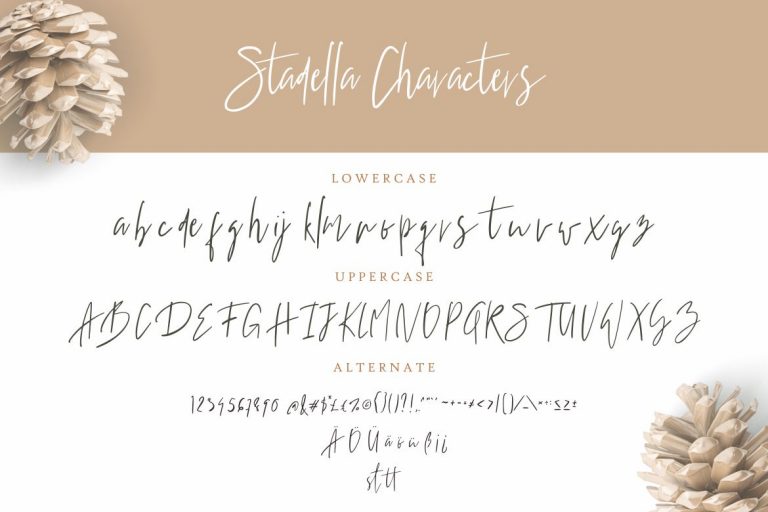 Stadella Characters
LOWERCASE
abcdefghij klmnopqrstuvwxyz
UPPERCASE
ABCDEFGHIJKLMNOPQRSTUVWXYZ
ALTERNATE
1234567890 @&#$
ÄÖÜäöüß¡¿
st tt